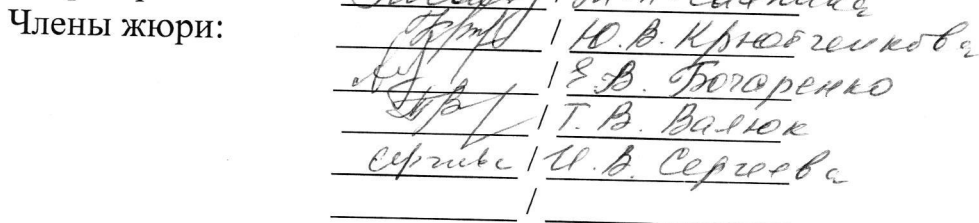 Члены жюри:
/ Ю.В. Крювченкова
/ Е.В. Бочаренко
/ Т.В. Валюк
/ И.В. Сергеева
/